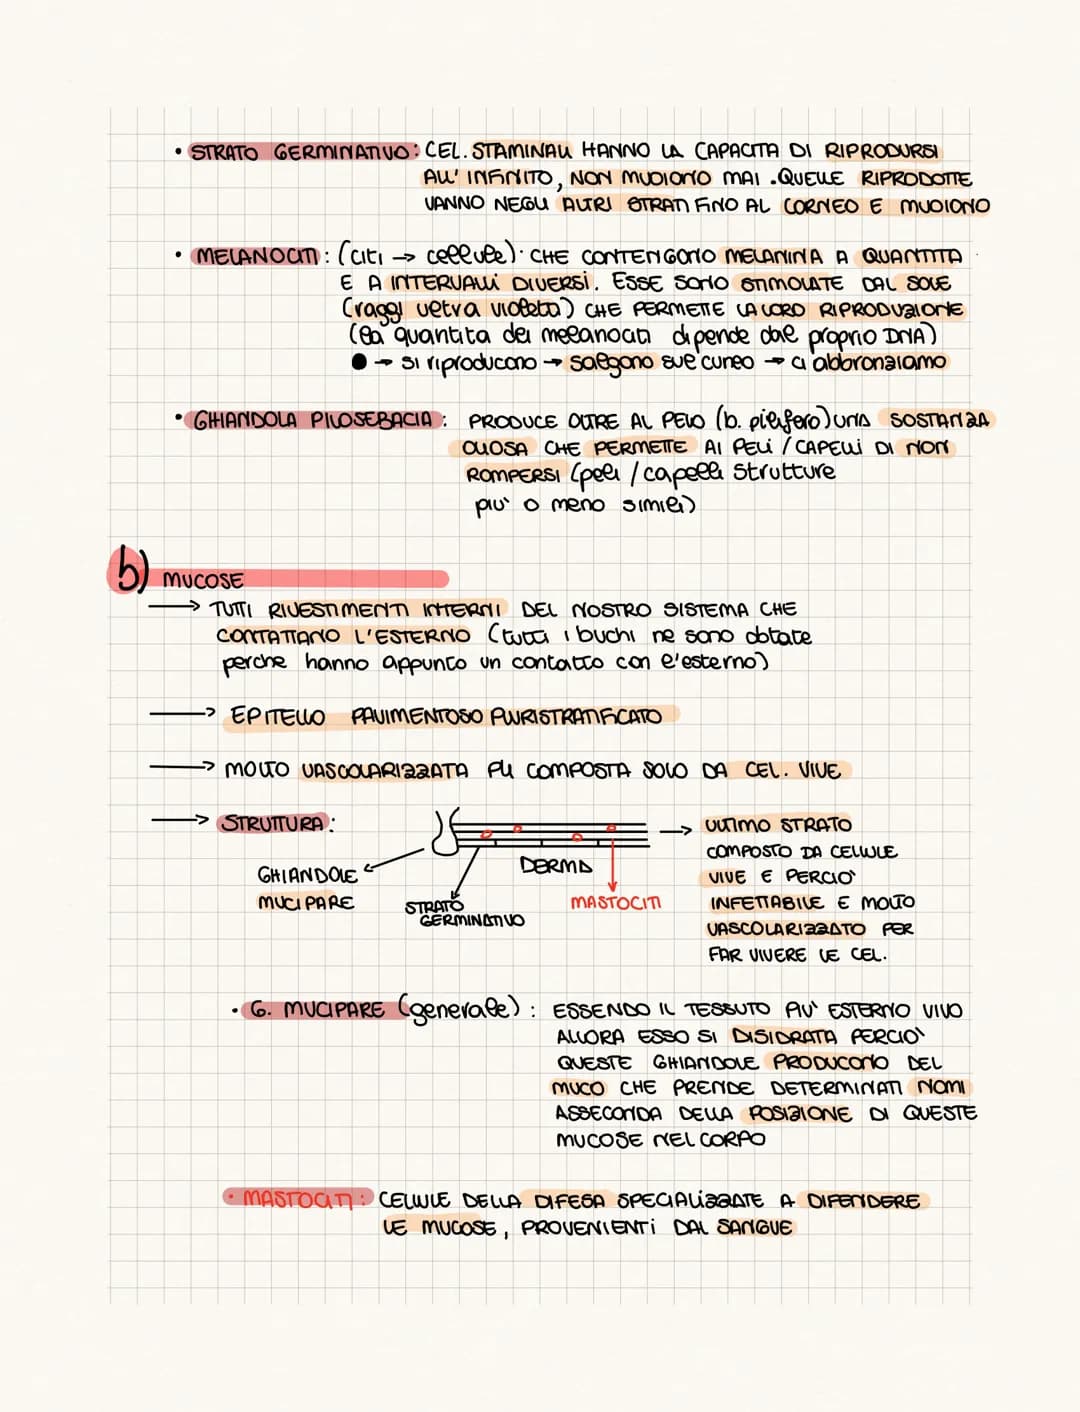 • STRATO GERMINATIVO: CEL. STAMINALI HANNO LA CAPACITA DI RIPRODURSI
ALL'INFINITO, NON MUOIONO MAI. QUELLE RIPRODOTTE
VANNO NEGLI ALTRI STRATI FINO AL CORNEO E MUOIONO
• MELANOCITI: (citi → cellule). CHE CONTENGONO MELANINA A QUANTITA
E A INTERVALLI DIVERSI. ESSE SONO STIMOLATE DAL SOLE
(raggi ultra violetta) CHE PERMETTE LA LORO RIPRODUZIONE
(la quantita dei melanociti dipende dal proprio DNA)
● → si riproducono → salgono sul cuneo → ci abbronziamo
• GHIANDOLA PILOSEBACIA: PRODUCE OLTRE AL PELO (b. pilifero) UNA SOSTANZA
OLIOSA CHE PERMETTE AI PELI / CAPELLI DI NON
ROMPERSI (peli / capelli strutture
piu' o meno simili)
b) MUCOSE
→ TUTTI RIVESTIMENTI INTERNI DEL NOSTRO SISTEMA CHE
CONTATTANO L'ESTERNO (tutti i buchi ne sono dotate
perche hanno appunto un contatto con l'esterno)
→ EPITELLO PAVIMENTOSO PLURISTRATIFICATO
→ MOLTO VASCOLARIZZATA PIÙ COMPOSTA SOLO DA CEL. VIVE
→ STRUTTURA:
GHIANDOLE
MUCIPARE
STRATO
GERMINATIVO
DERMA
MASTOCITI
→ ULTIMO STRATO
COMPOSTO DA CELLULE
VIVE E PERCIO'
INFETTABILE E MOLTO
VASCOLARIZZATO PER
FAR VIVERE LE CEL.
• G. MUCIPARE (generale): ESSENDO IL TESSUTO PIU' ESTERNO VIVO
ALLORA ESSO SI DISIDRATA PERCIO'
QUESTE GHIANDOLE PRODUCONO DEL
MUCO CHE PRENDE DETERMINATI NOMI
ASSECONDA DELLA POSIZIONE DI QUESTE
MUCOSE NEL CORPO
• MASTOCITI: CELLULE DELLA DIFESA SPECIALIZZATE A DIFENDERE
LE MUCOSE, PROVENIENTI DAL SANGUE